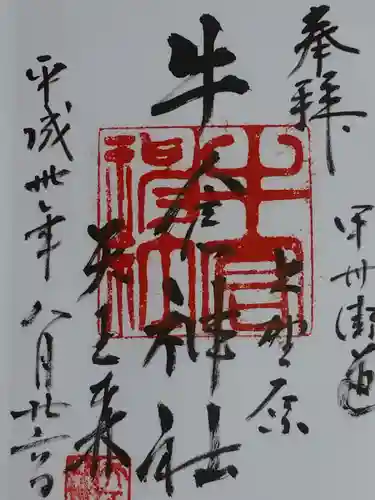 奉拝
甲州街道
上野原
牛倉神社
天王
平成卅年八月廿六日